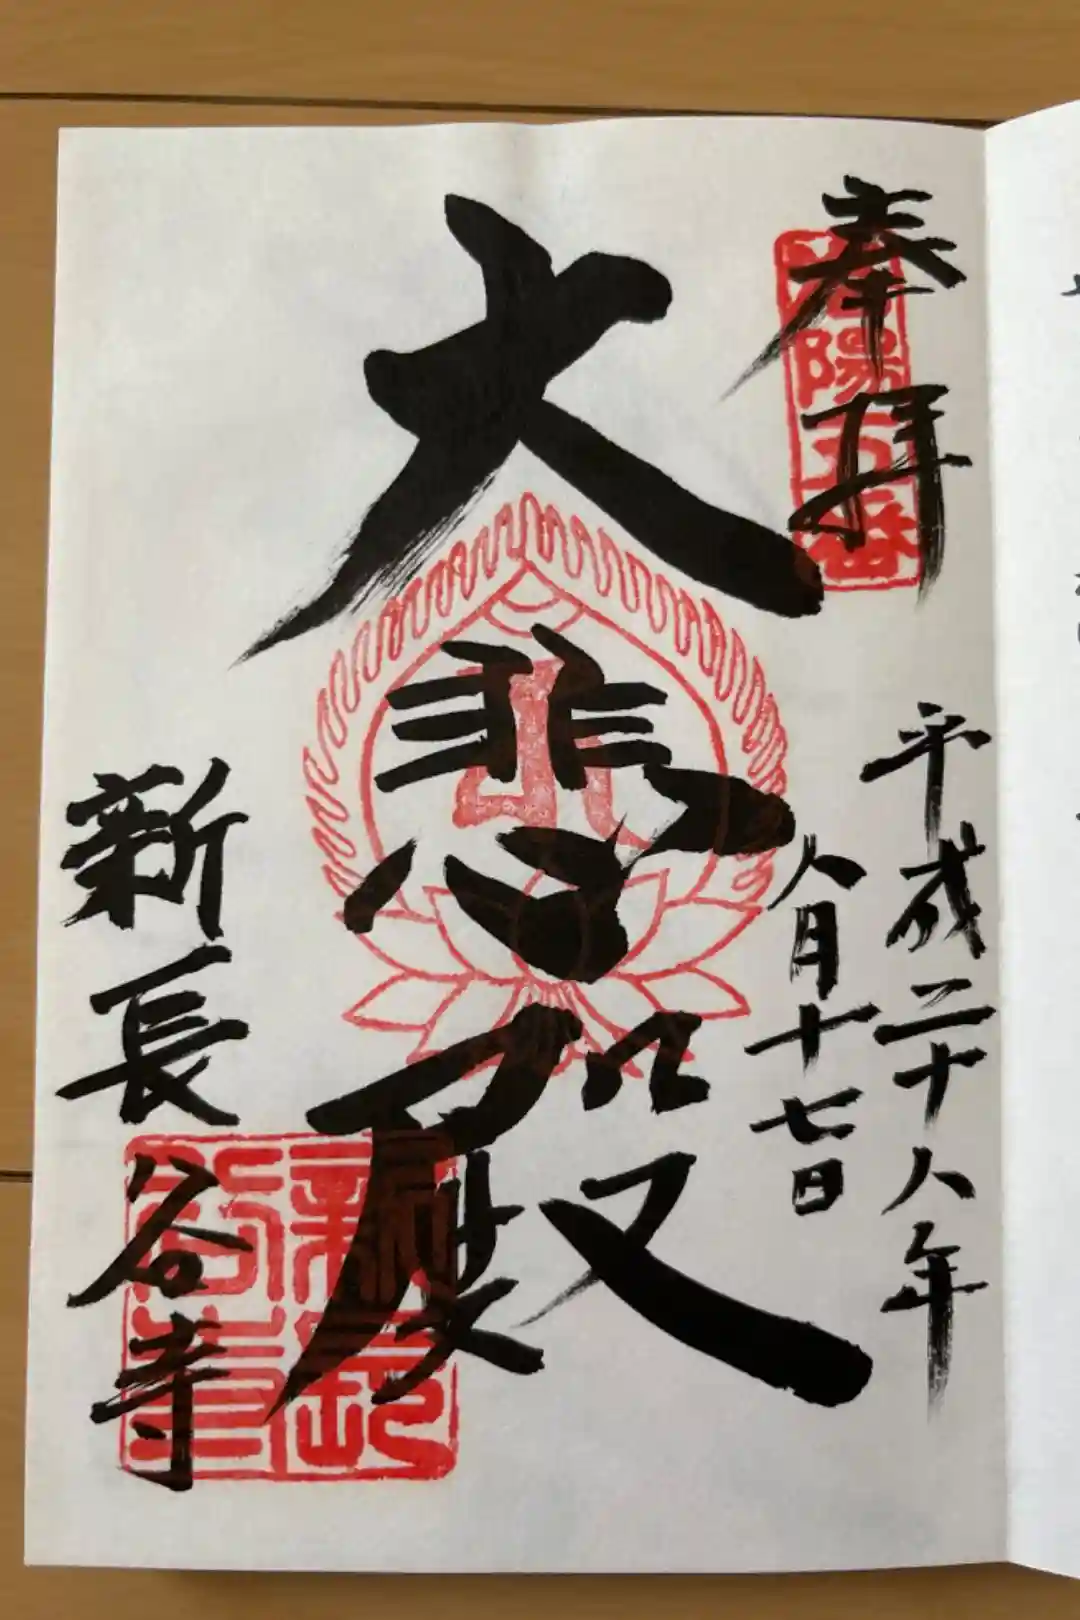 奉拝
洛陽五番
平成二十八年
八月十七日
大悲殿
新長谷寺